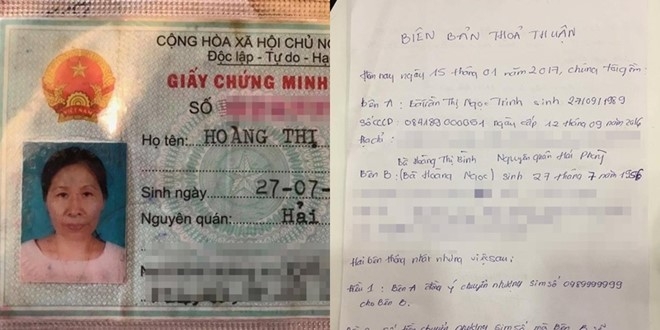 CỘNG HÒA XÃ HỘI CHỦ NG
Độc lập - Tự do - Hạ
GIẤY CHỨNG MINH
SỐ
Họ tên: HOÀNG THỊ
Sinh ngày 27-07-
Nguyên quán: Hải
BIÊN BẢN THOẢ THUẬN
Hôm nay ngày 15 tháng 01 năm 2017, chúng tôi gồm:
Bên A: Bà Trần Thị Ngọc Trinh sinh: 27/09/1989
Số CCCD: 084189000051 ngày cấp 12 tháng 09 năm 2016
Địa chỉ:
Bà Hoàng Thị Bình Nguyên quán Hải Phòng
Bên B: (Bà Hoàng Ngọc) sinh 27 tháng 7 năm 1956
Hai bên thống nhất những việc sau:
Điều 1: Bên A đồng ý chuyển nhượng sim số 0989999999
cho Bên B.